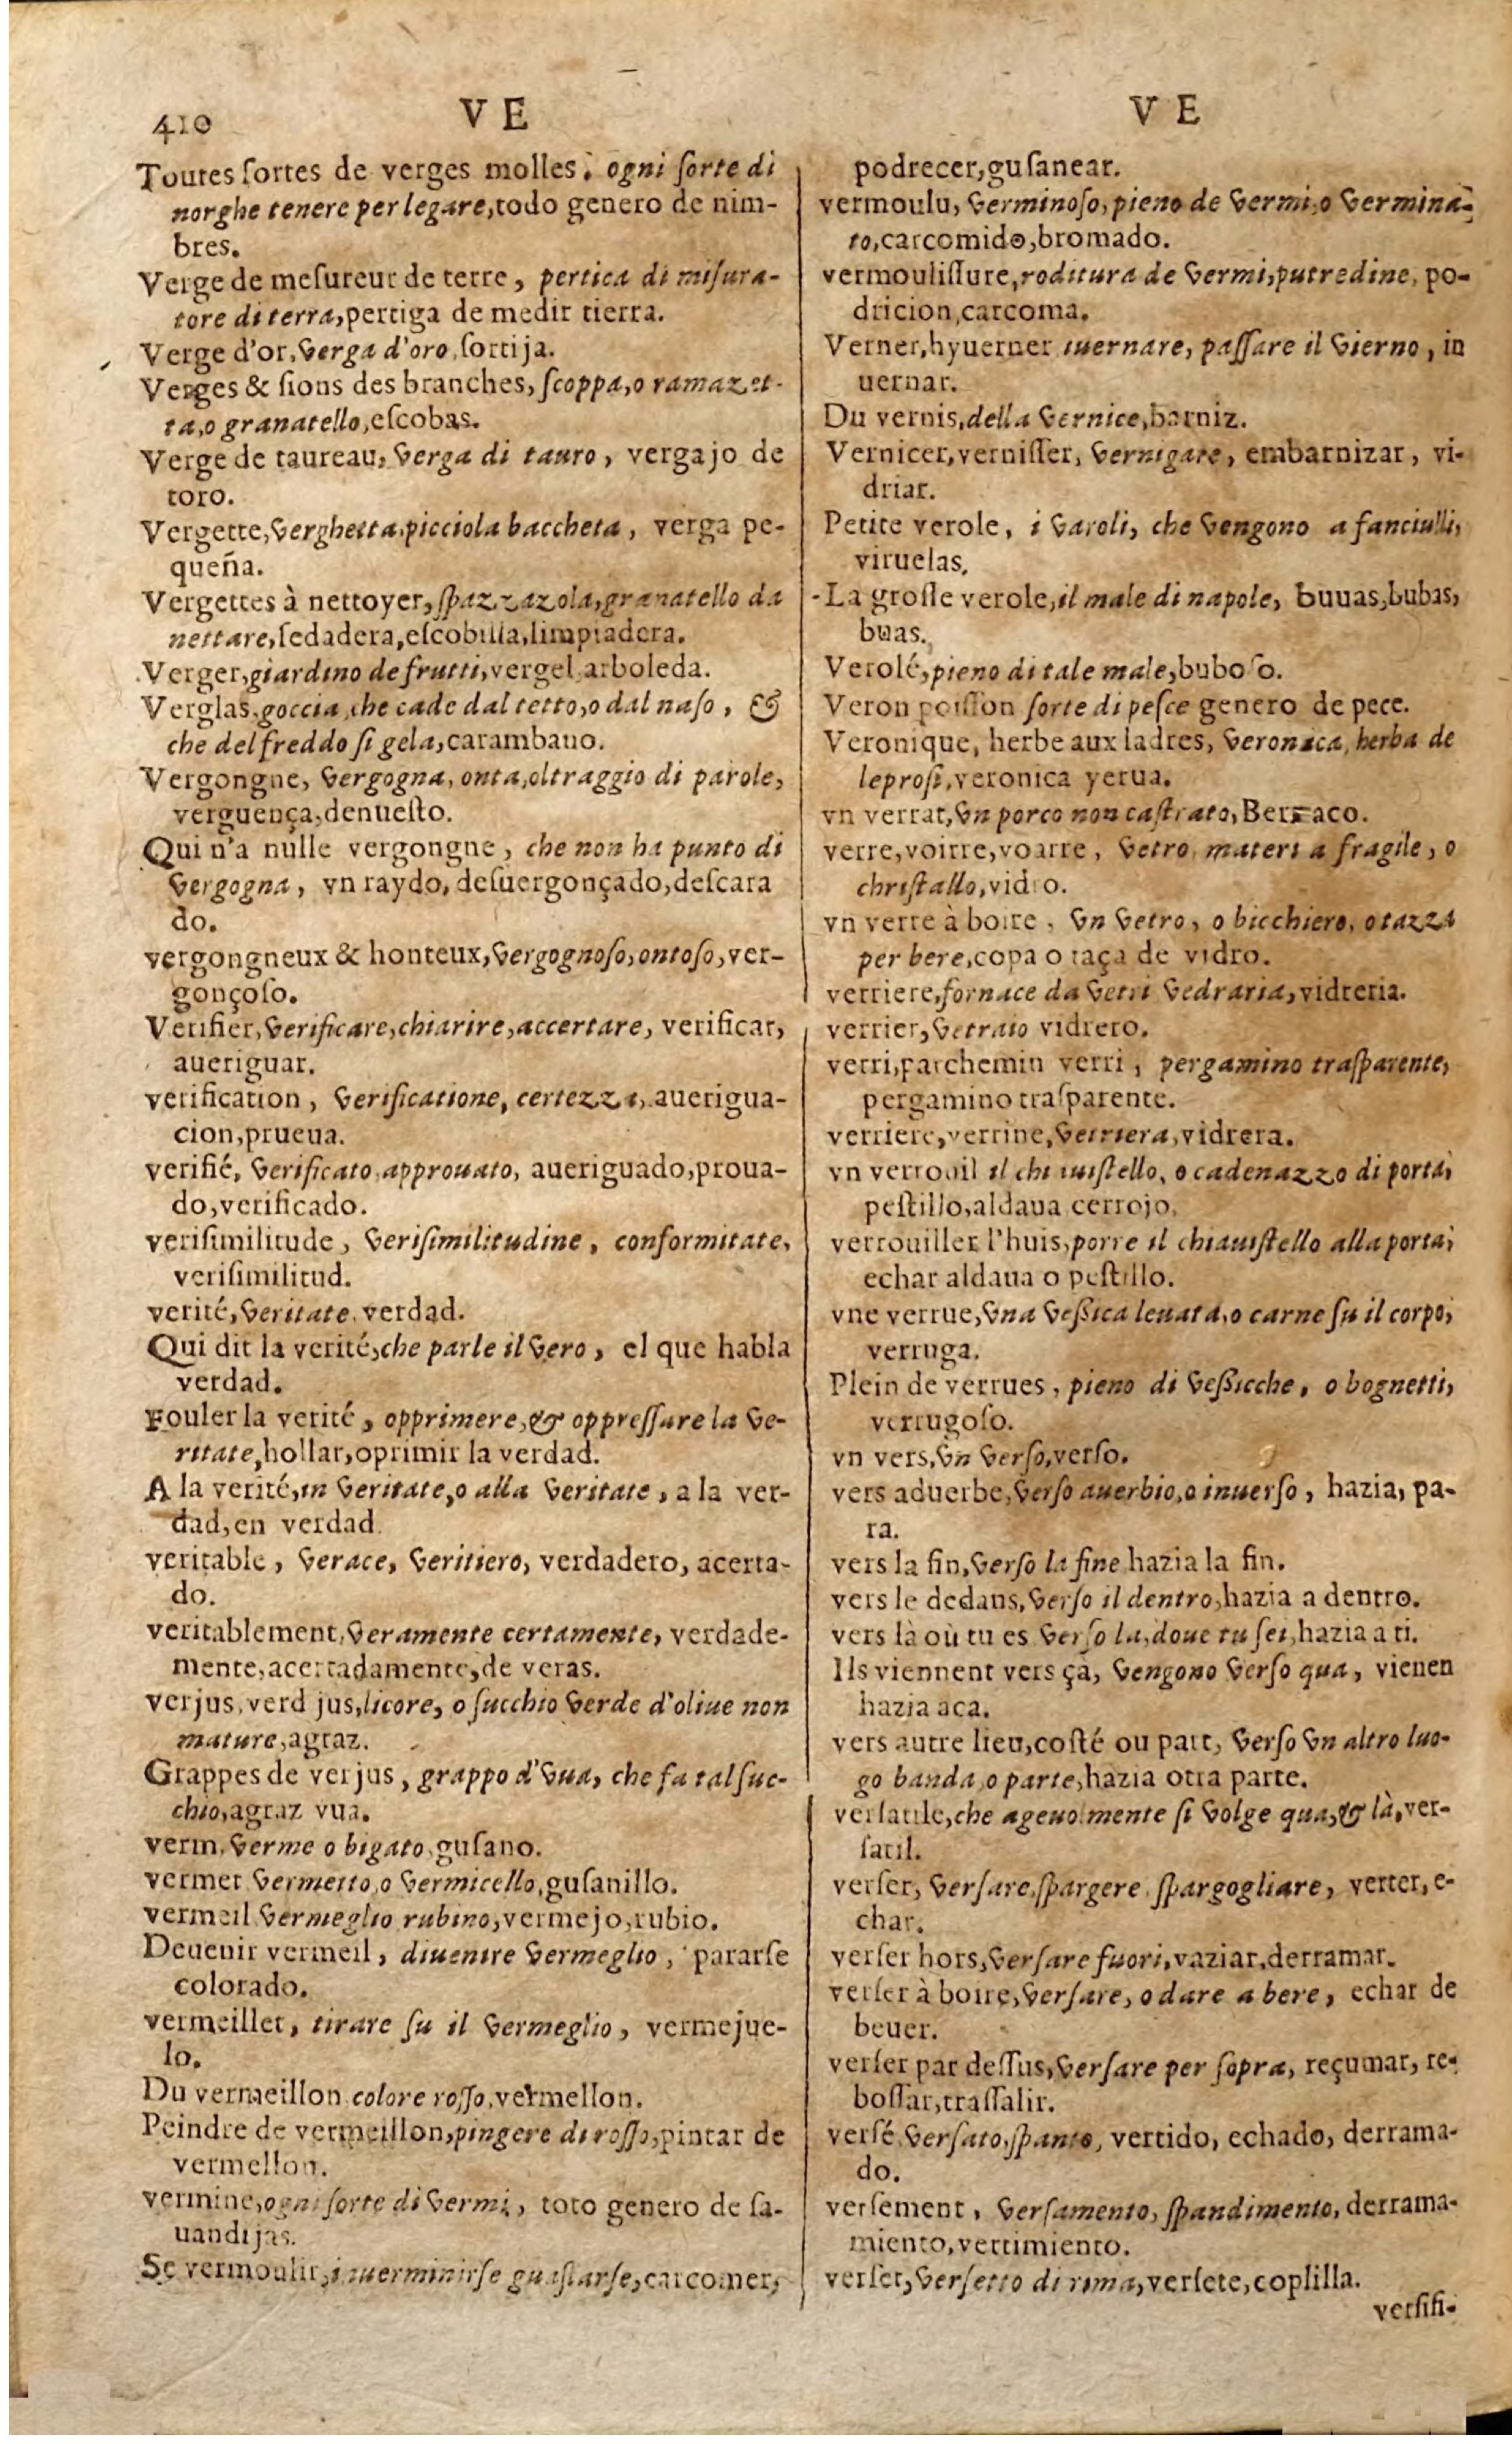 410
V E
Toutes ſortes de verges molles, ogni ſorte di
norghe tenere per legare, todo genero de nim-
bres.
Verge de meſureur de terre, pertica di miſura-
tore di terra, pertiga de medir tierra.
Verge d'or, verga d'oro, ſortija.
Verges & ſions des branches, ſcoppa, o ramazet-
ta, o granatello, eſcobas.
Verge de taureau, verga di tauro, vergajo de
toro.
Vergette, verghetta, picciola baccheta, verga pe-
queña.
Vergettes à nettoyer, ſpazzazola, granatello da
nettare, ſedadera, eſcobilla, limpiadera.
Verger, giardino de frutti, vergel, arboleda.
Verglas, goccia, che cade dal tetto, o dal naſo, &
che del freddo ſi gela, carambano.
Vergongne, vergogna, onta, oltraggio di parole,
verguença, denueſto.
Qui n'a nulle vergongne, che non ha punto di
vergogna, vn raydo, deſuergonçado, deſcara
do.
vergongneux & honteux, vergognoſo, ontoſo, ver-
gonçoſo.
Verifier, verificare, chiarire, accertare, verificar,
aueriguar.
verification, verificatione, certezza, auerigua-
cion, prueua.
verifié, verificato, approuato, aueriguado, proua-
do, verificado.
veriſimilitude, veriſimilitudine, conformitate,
veriſimilitud.
verité, veritate, verdad.
Qui dit la verité, che parle il vero, el que habla
verdad.
Fouler la verité, opprimere, & oppreſſare la ve-
ritate, hollar, oprimir la verdad.
A la verité, in veritate, o alla veritate, a la ver-
dad, en verdad.
veritable, verace, veritiero, verdadero, acerta-
do.
veritablement, veramente certamente, verdade-
mente, acertadamente, de veras.
verjus, verd jus, licore, o ſucchio verde d'oliue non
mature, agraz.
Grappes de verjus, grappo d'vua, che fa tal ſuc-
chio, agraz vua.
verm, verme o bigato, guſano.
vermet vermetto, o vermicello, guſanillo.
vermeil vermeglio rubino, vermejo, rubio.
Deuenir vermeil, diuenire vermeglio, pararſe
colorado.
vermeillet, tirare ſu il vermeglio, vermejue-
lo.
Du vermeillon colore roſſo, vermellon.
Peindre de vermeillon, pingere di roſſo, pintar de
vermellon.
vermine, ogni ſorte di vermi, toto genero de ſa-
uandijas.
Se vermoulir, inuerminirſe guaſtarſe, carcomer,
V E
podrecer, guſanear.
vermoulu, verminoſo, pieno de vermi, o vermina-
to, carcomido, bromado.
vermouliſſure, roditura de vermi, putredine, po-
dricion, carcoma.
Verner, hyuerner iuernare, paſſare il vierno, in
uernar.
Du vernis, della vernice, barniz.
Vernicer, verniſſer, vernigare, embarnizar, vi-
driar.
Petite verole, i varoli, che vengono a fanciulli,
viruelas,
La groſſe verole, il male di napole, buuas, bubas,
buas.
Verolé, pieno di tale male, buboſo.
Veron poiſſon ſorte di peſce genero de pece.
Veronique, herbe aux ladres, veronica, herba de
leproſi, veronica yerua.
vn verrat, vn porco non caſtrato, Berraco.
verre, voirre, voarre, vetro, materi a fragile, o
chriſtallo, vidro.
vn verre à boire, vn vetro, o bicchiero, o tazza
per bere, copa o taça de vidro.
verriere, fornace da vetri vedraria, vidreria.
verrier, vetraio vidrero.
verri, parchemin verri, pergamino traſparente,
pergamino traſparente.
verriere, verrine, vetriera, vidrera.
vn verrouil il chiauiſtello, o cadenazzo di porta,
peſtillo, aldaua cerrojo.
verrouiller l'huis, porre il chiauiſtello alla porta,
echar aldaua o peſtillo.
vne verrue, vna veſsica leuata, o carne ſu il corpo,
verruga.
Plein de verrues, pieno di veſsicche, o bognetti,
verrugoſo.
vn vers, vn verſo, verſo.
vers aduerbe, verſo auerbio, o inuerſo, hazia, pa-
ra.
vers la fin, verſo la fine hazia la fin.
vers le dedans, verſo il dentro, hazia a dentro.
vers là où tu es verſo la, doue tu ſei, hazia a ti.
Ils viennent vers çà, vengono verſo qua, vienen
hazia aca.
vers autre lieu, coſté ou part, verſo vn altro luo-
go banda, o parte, hazia otra parte.
verſatile, che ageuolmente ſi volge qua, & là, ver-
ſatil.
verſer, verſare, ſpargere, ſpargogliare, verter, e-
char.
verſer hors, verſare fuori, vaziar, derramar.
verſer à boire, verſare, o dare a bere, echar de
beuer.
verſer par deſſus, verſare per ſopra, reçumar, re-
boſſar, traſſalir.
verſé verſato, ſpanto, vertido, echado, derrama-
do.
verſement, verſamento, ſpandimento, derrama-
miento, vertimiento.
verſet, verſetto di rima, verſete, coplilla.
verſifi-